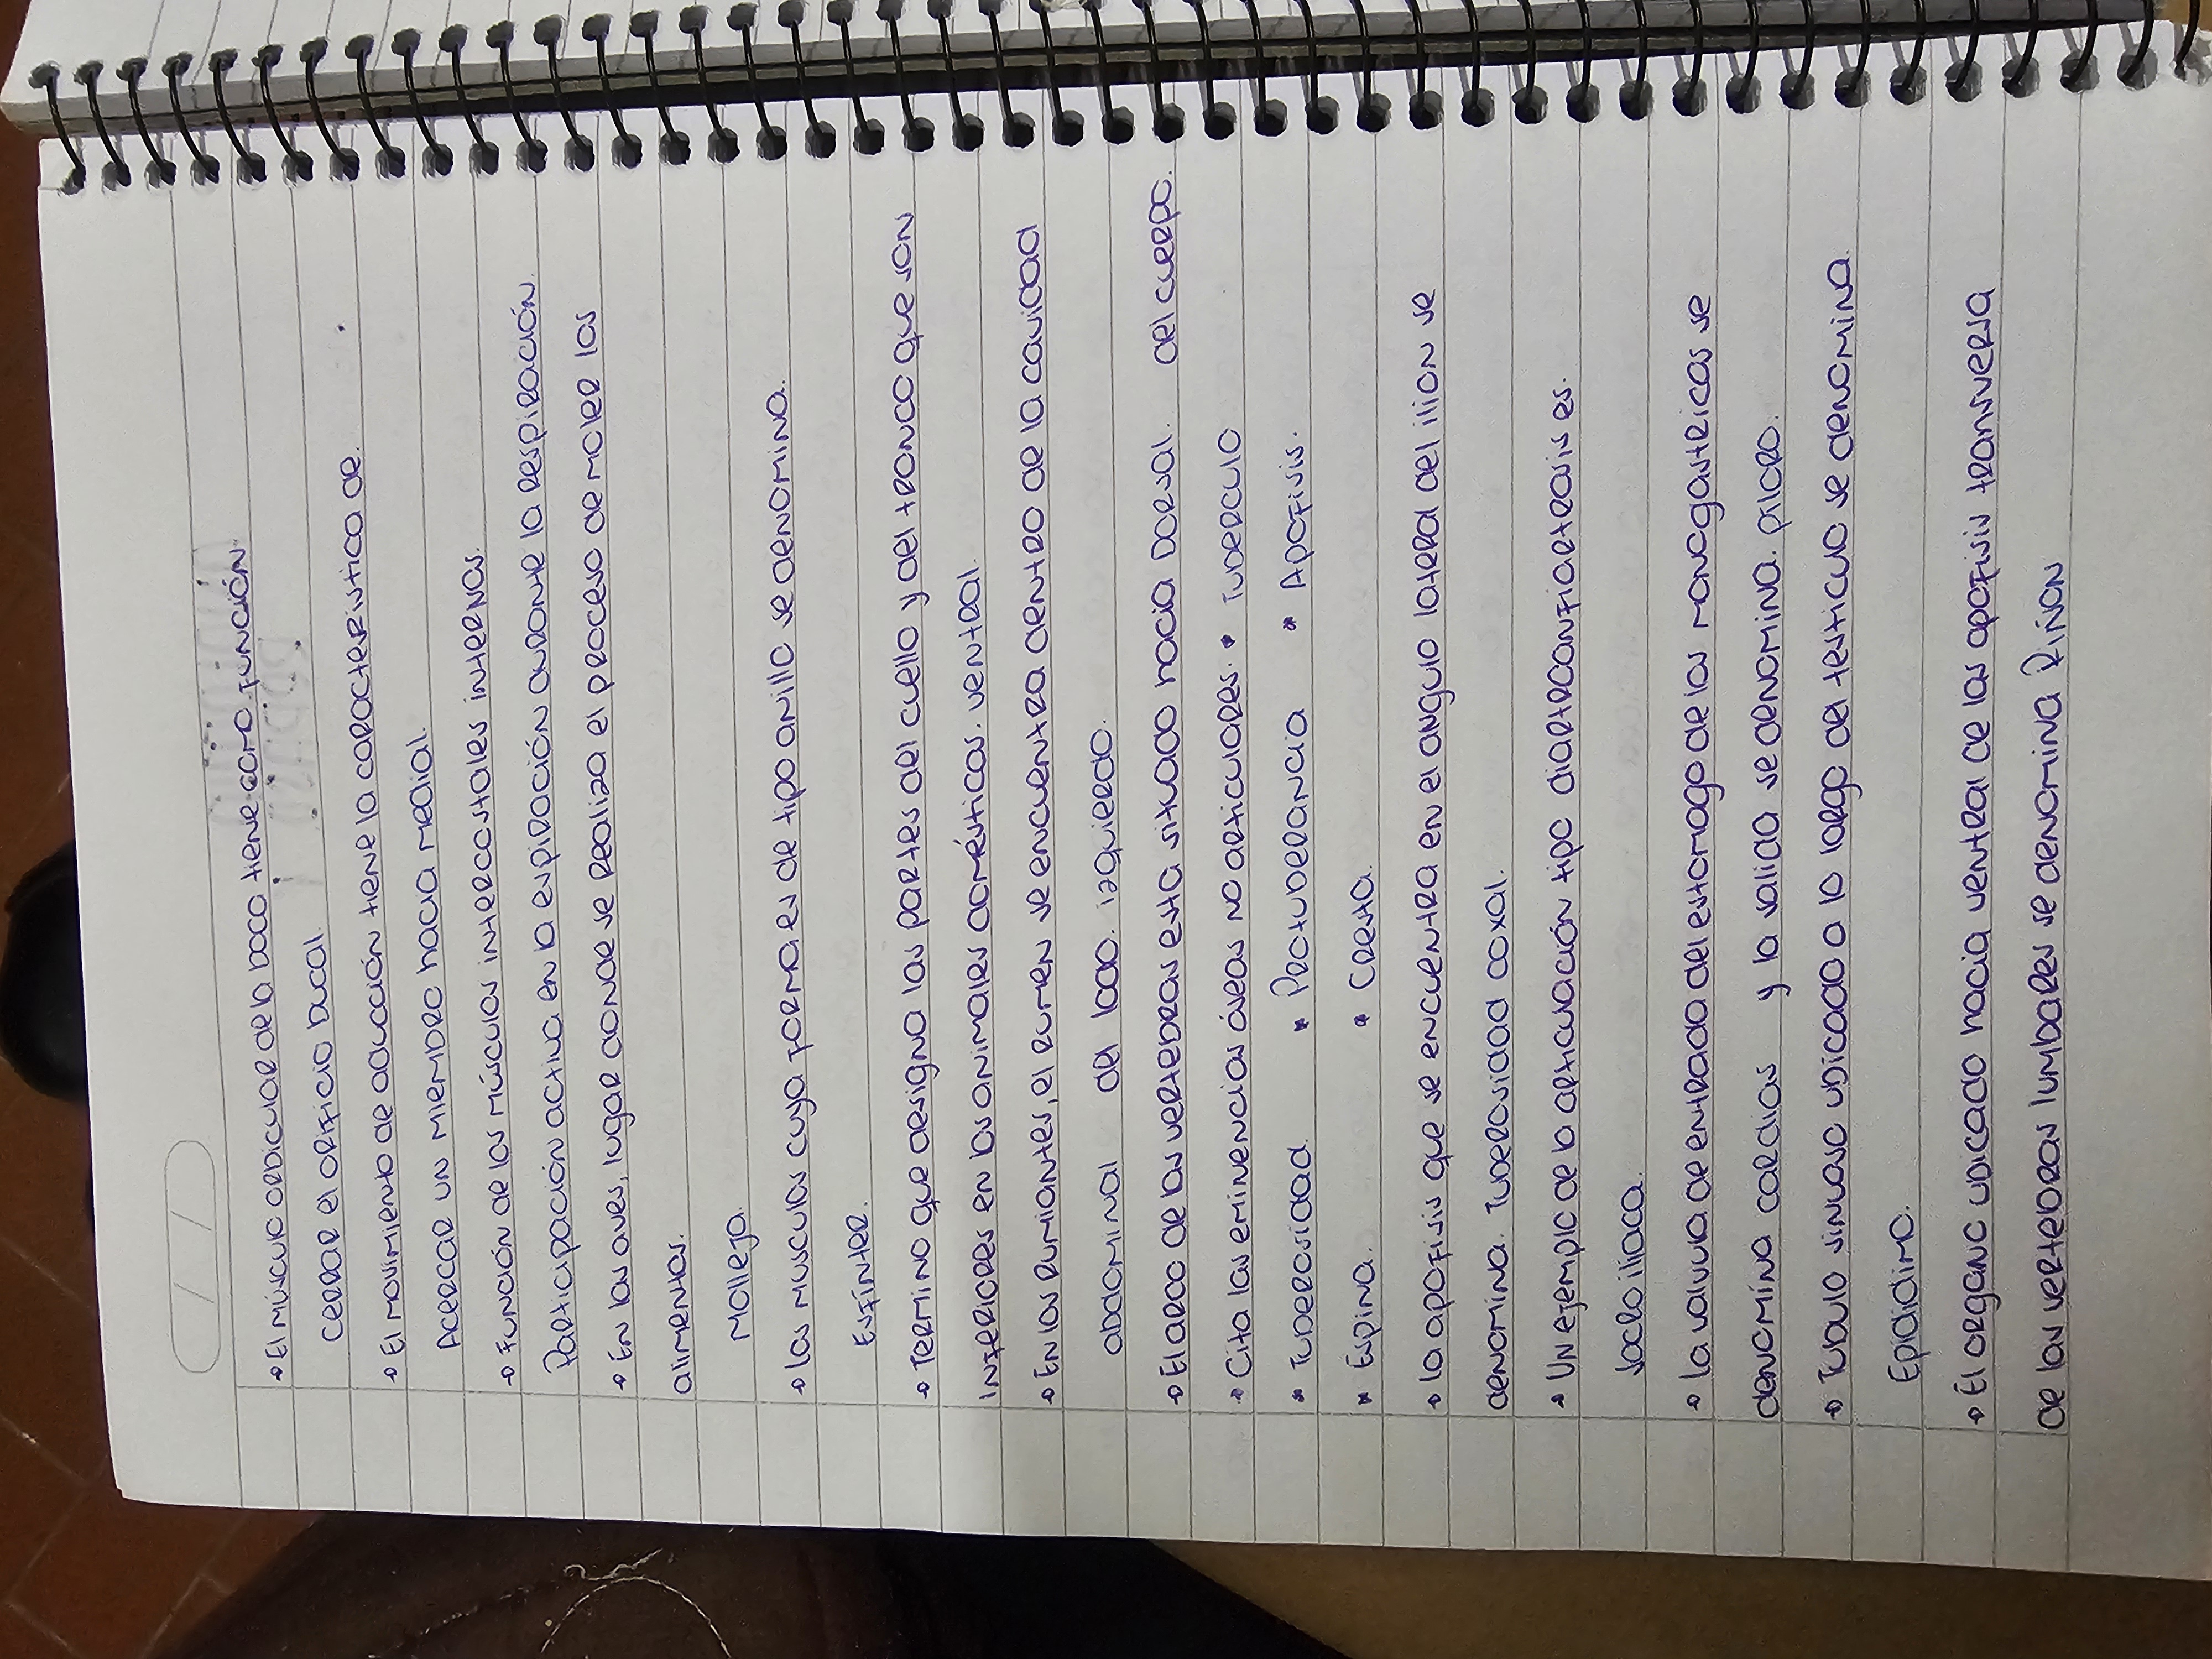 • El músculo orbicular de la boca tiene como función.
Cerrar el orificio bucal.
• El movimiento de aducción tiene la característica de.
Acercar un miembro hacia medial.
• Función de los músculos intercostales internos.
Participación activa en la espiración durante la respiración.
• En las aves, lugar donde se realiza el proceso de moler los
alimentos.
Molleja.
• Los musculos cuya forma es de tipo anillo se denomina.
Esfínter.
• Termino que designa las partes del cuello y del tronco que son
inferiores en los animales domésticos. ventral.
• En los rumiantes, el rumen se encuentra dentro de la cavidad
abdominal del lado. izquierdo.
• El arco de las vertebras esta situado hacia Dorsal. del cuerpo.
• Cita las eminencias óseas no articulares. • Tuberculo
• Tuberosidad. • Protuberancia • Apofisis.
• Espina. • Cresta.
• la apofisis que se encuentra en el angulo lateral del ilion se
denomina. Tuberosidad coxal.
• Un ejemplo de la articulación tipo diartroanfiartrosis es.
Sacro iliaca.
• La valvula de entrada del estomago de los monogastricos se
denomina cardias y la salida se denomina. piloro.
• Tubulo sinuoso ubicado a lo largo del testiculo se denomina.
Epididimo.
• El organo ubicado hacia ventral de las apofisis transversa
de las vertebras lumbares se denomina Riñon